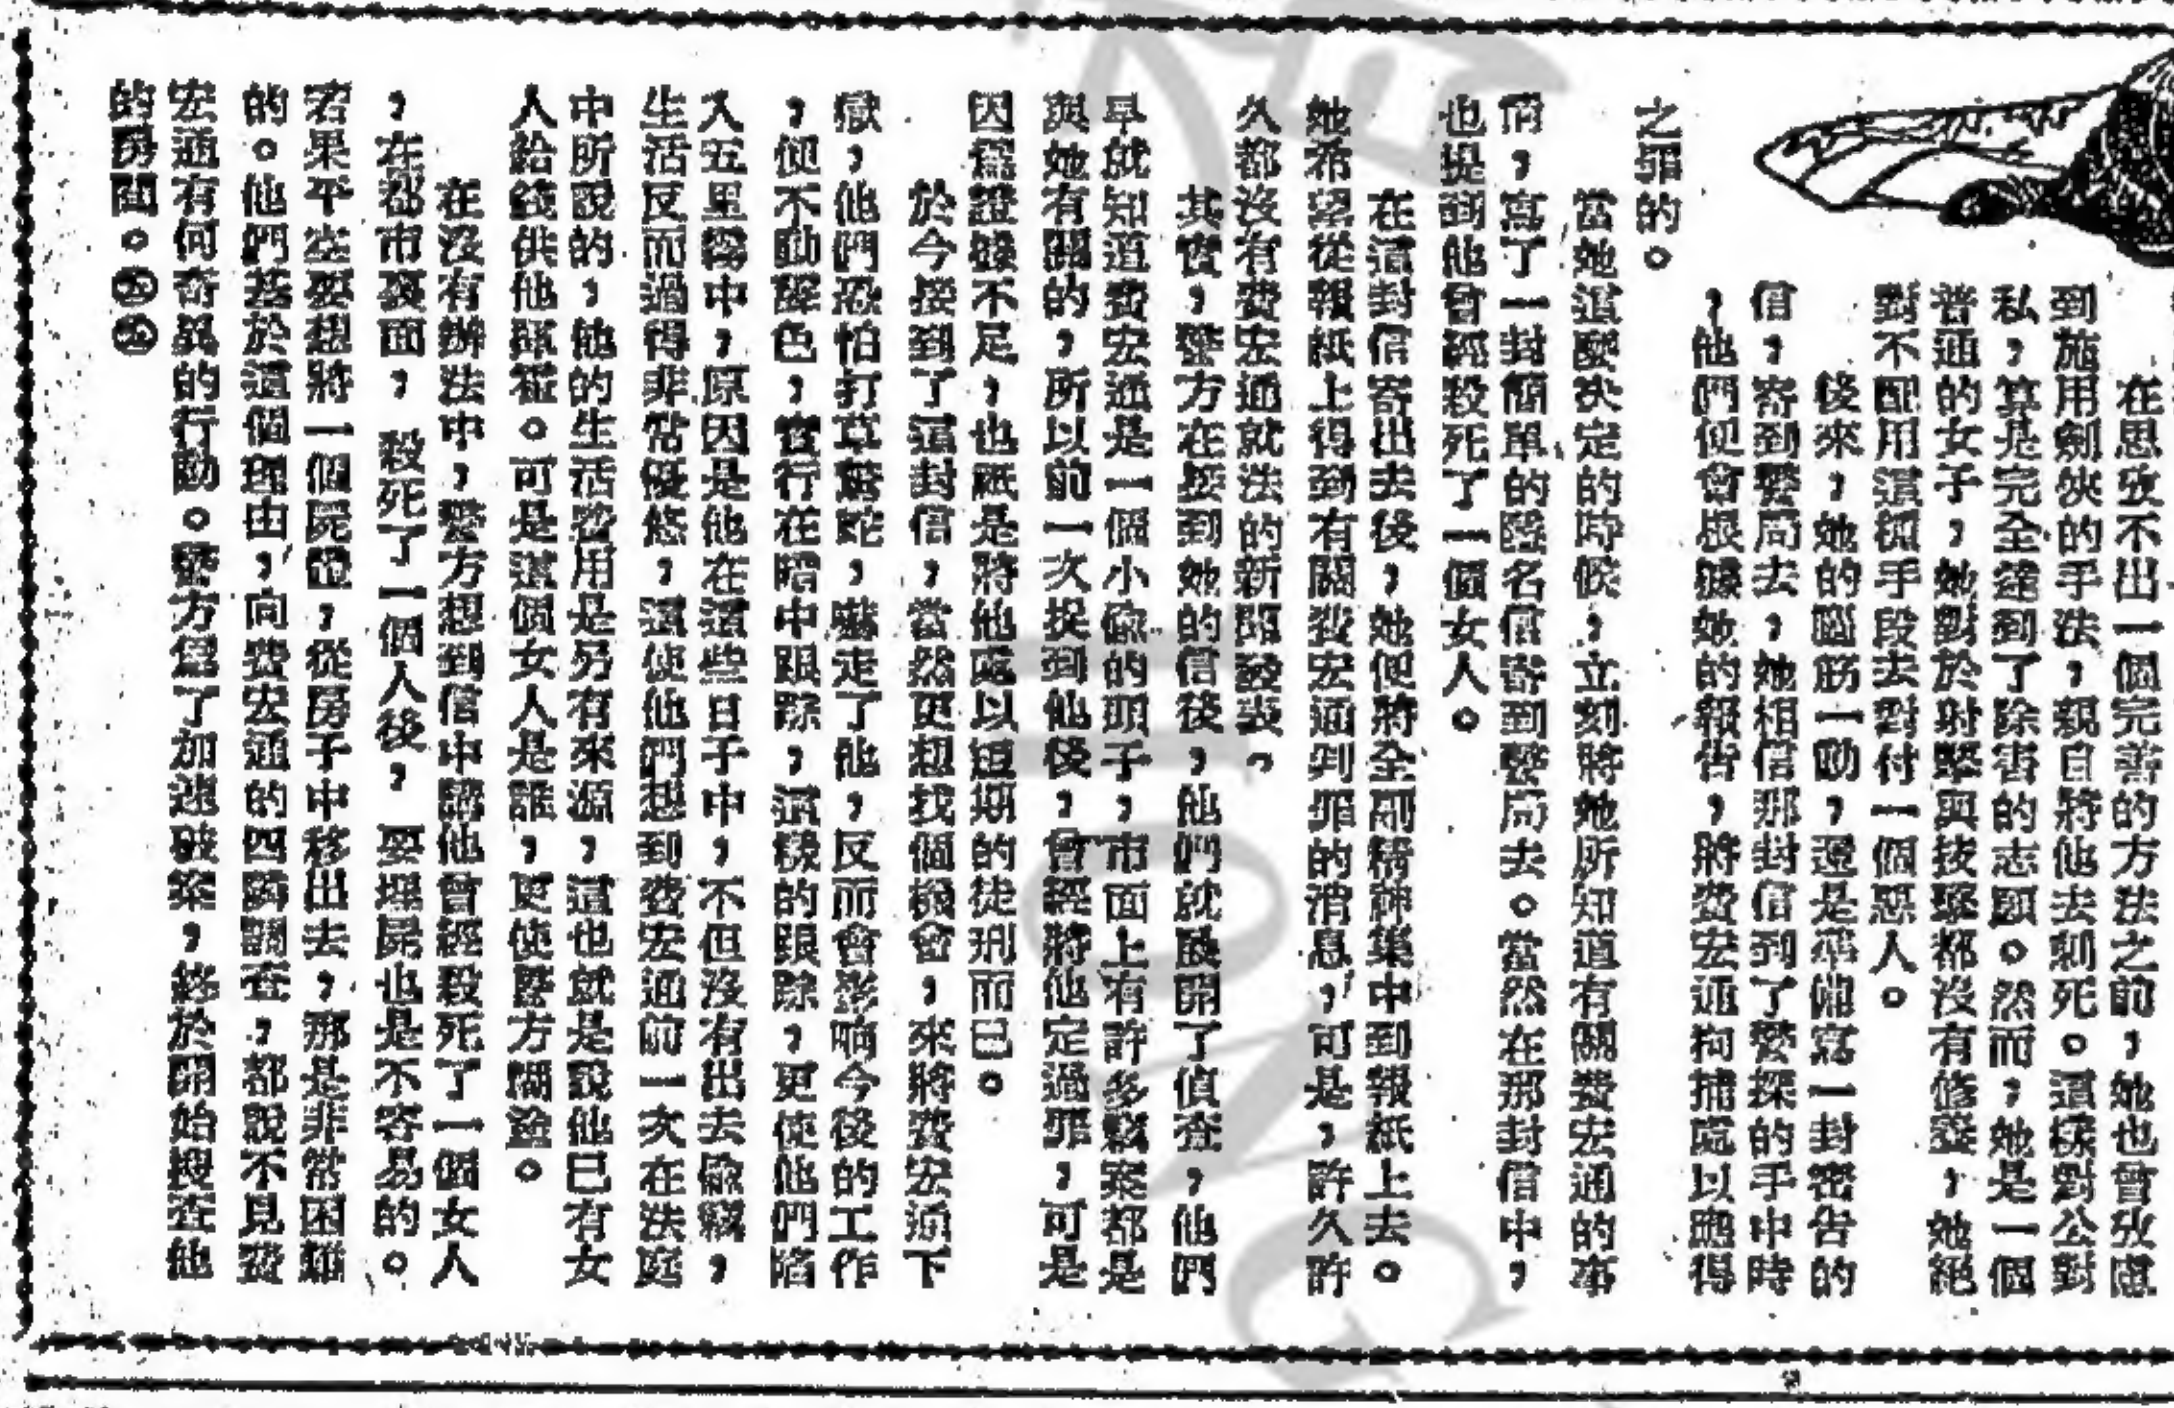 在思攷不出一個完善的方法之前，她也曾攷慮
到施用劍俠的手法，親自將他去刺死。這樣對公對
私，算是完全達到了除害的志願。然而，她是一個
普通的女子，她對於射擊與技擊都沒有修養，她絕
對不配用這種手段去對付一個惡人。
後來，她的腦筋一動，還是準備寫一封密告的
信，寄到警局去，她相信那封信到了警探的手中時
，他們便會根據她的報告，將費宏通拘捕處以應得
之罪的。
當她這麼決定的時候，立刻將她所知道有關費宏通的事
情，寫了一封簡單的隱名信寄到警局去。當然在那封信中，
也提到他曾經殺死了一個女人。
在這封信寄出去後，她便將全副精神集中到報紙上去。
她希望從報紙上得到有關費宏通判罪的消息，可是，許久許
久都沒有費宏通就法的新聞發表。
其實，警方在接到她的信後，他們就展開了偵查，他們
早就知道費宏通是一個小偷的頭子，市面上有許多竊案都是
與她有關的，所以前一次捉到他後，曾經將他定過罪，可是
因為證據不足，也祇是將他處以短期的徒刑而已。
於今接到了這封信，當然更想找個機會，來將費宏通下
獄，他們恐怕打草驚蛇，嚇走了他，反而會影响今後的工作
，便不動聲色，實行在暗中跟踪，這樣的跟踪，更使他們陷
入五里霧中，原因是他在這些日子中，不但沒有出去做竊，
生活反而過得非常優悠，這使他們想到費宏通前一次在法庭
中所說的，他的生活費用是另有來源，這也就是說他已有女
人給錢供他揮霍。可是這個女人是誰，更使警方糊塗。
在沒有辦法中，警方想到信中謂他曾經殺死了一個女人
，在都市裏面，殺死了一個人後，要埋屍也是不容易的。
若果平空要想將一個屍體，從房子中移出去，那是非常困難
的。他們基於這個理由，向費宏通的四鄰調查，都說不見費
宏通有何奇異的行動。警方為了加速破案，終於開始搜查他
的房間。